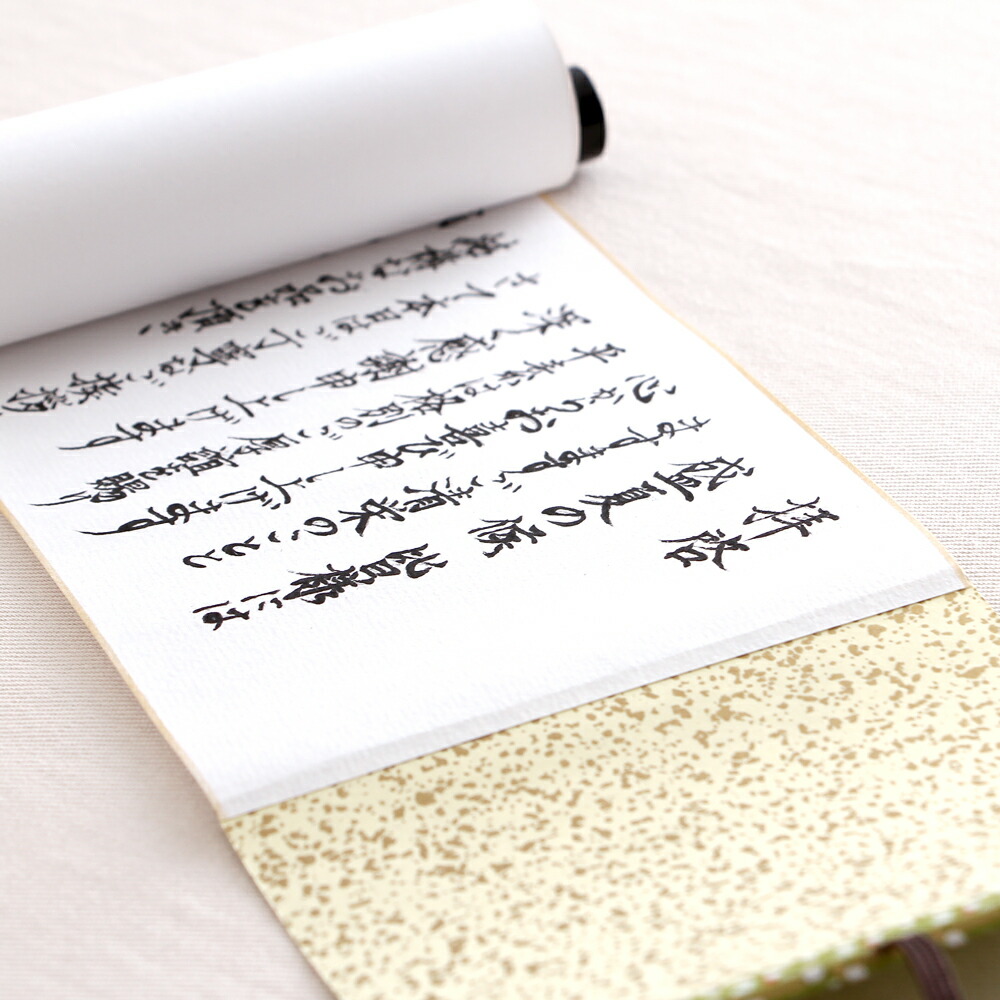 拝啓
盛夏の候 皆様には
ますますご清栄のことと
心からお喜び申し上げます
平素は格別のご厚誼を賜り
深く感謝申し上げます
さて本日はご丁寧なご挨拶
結構なお品を頂き、